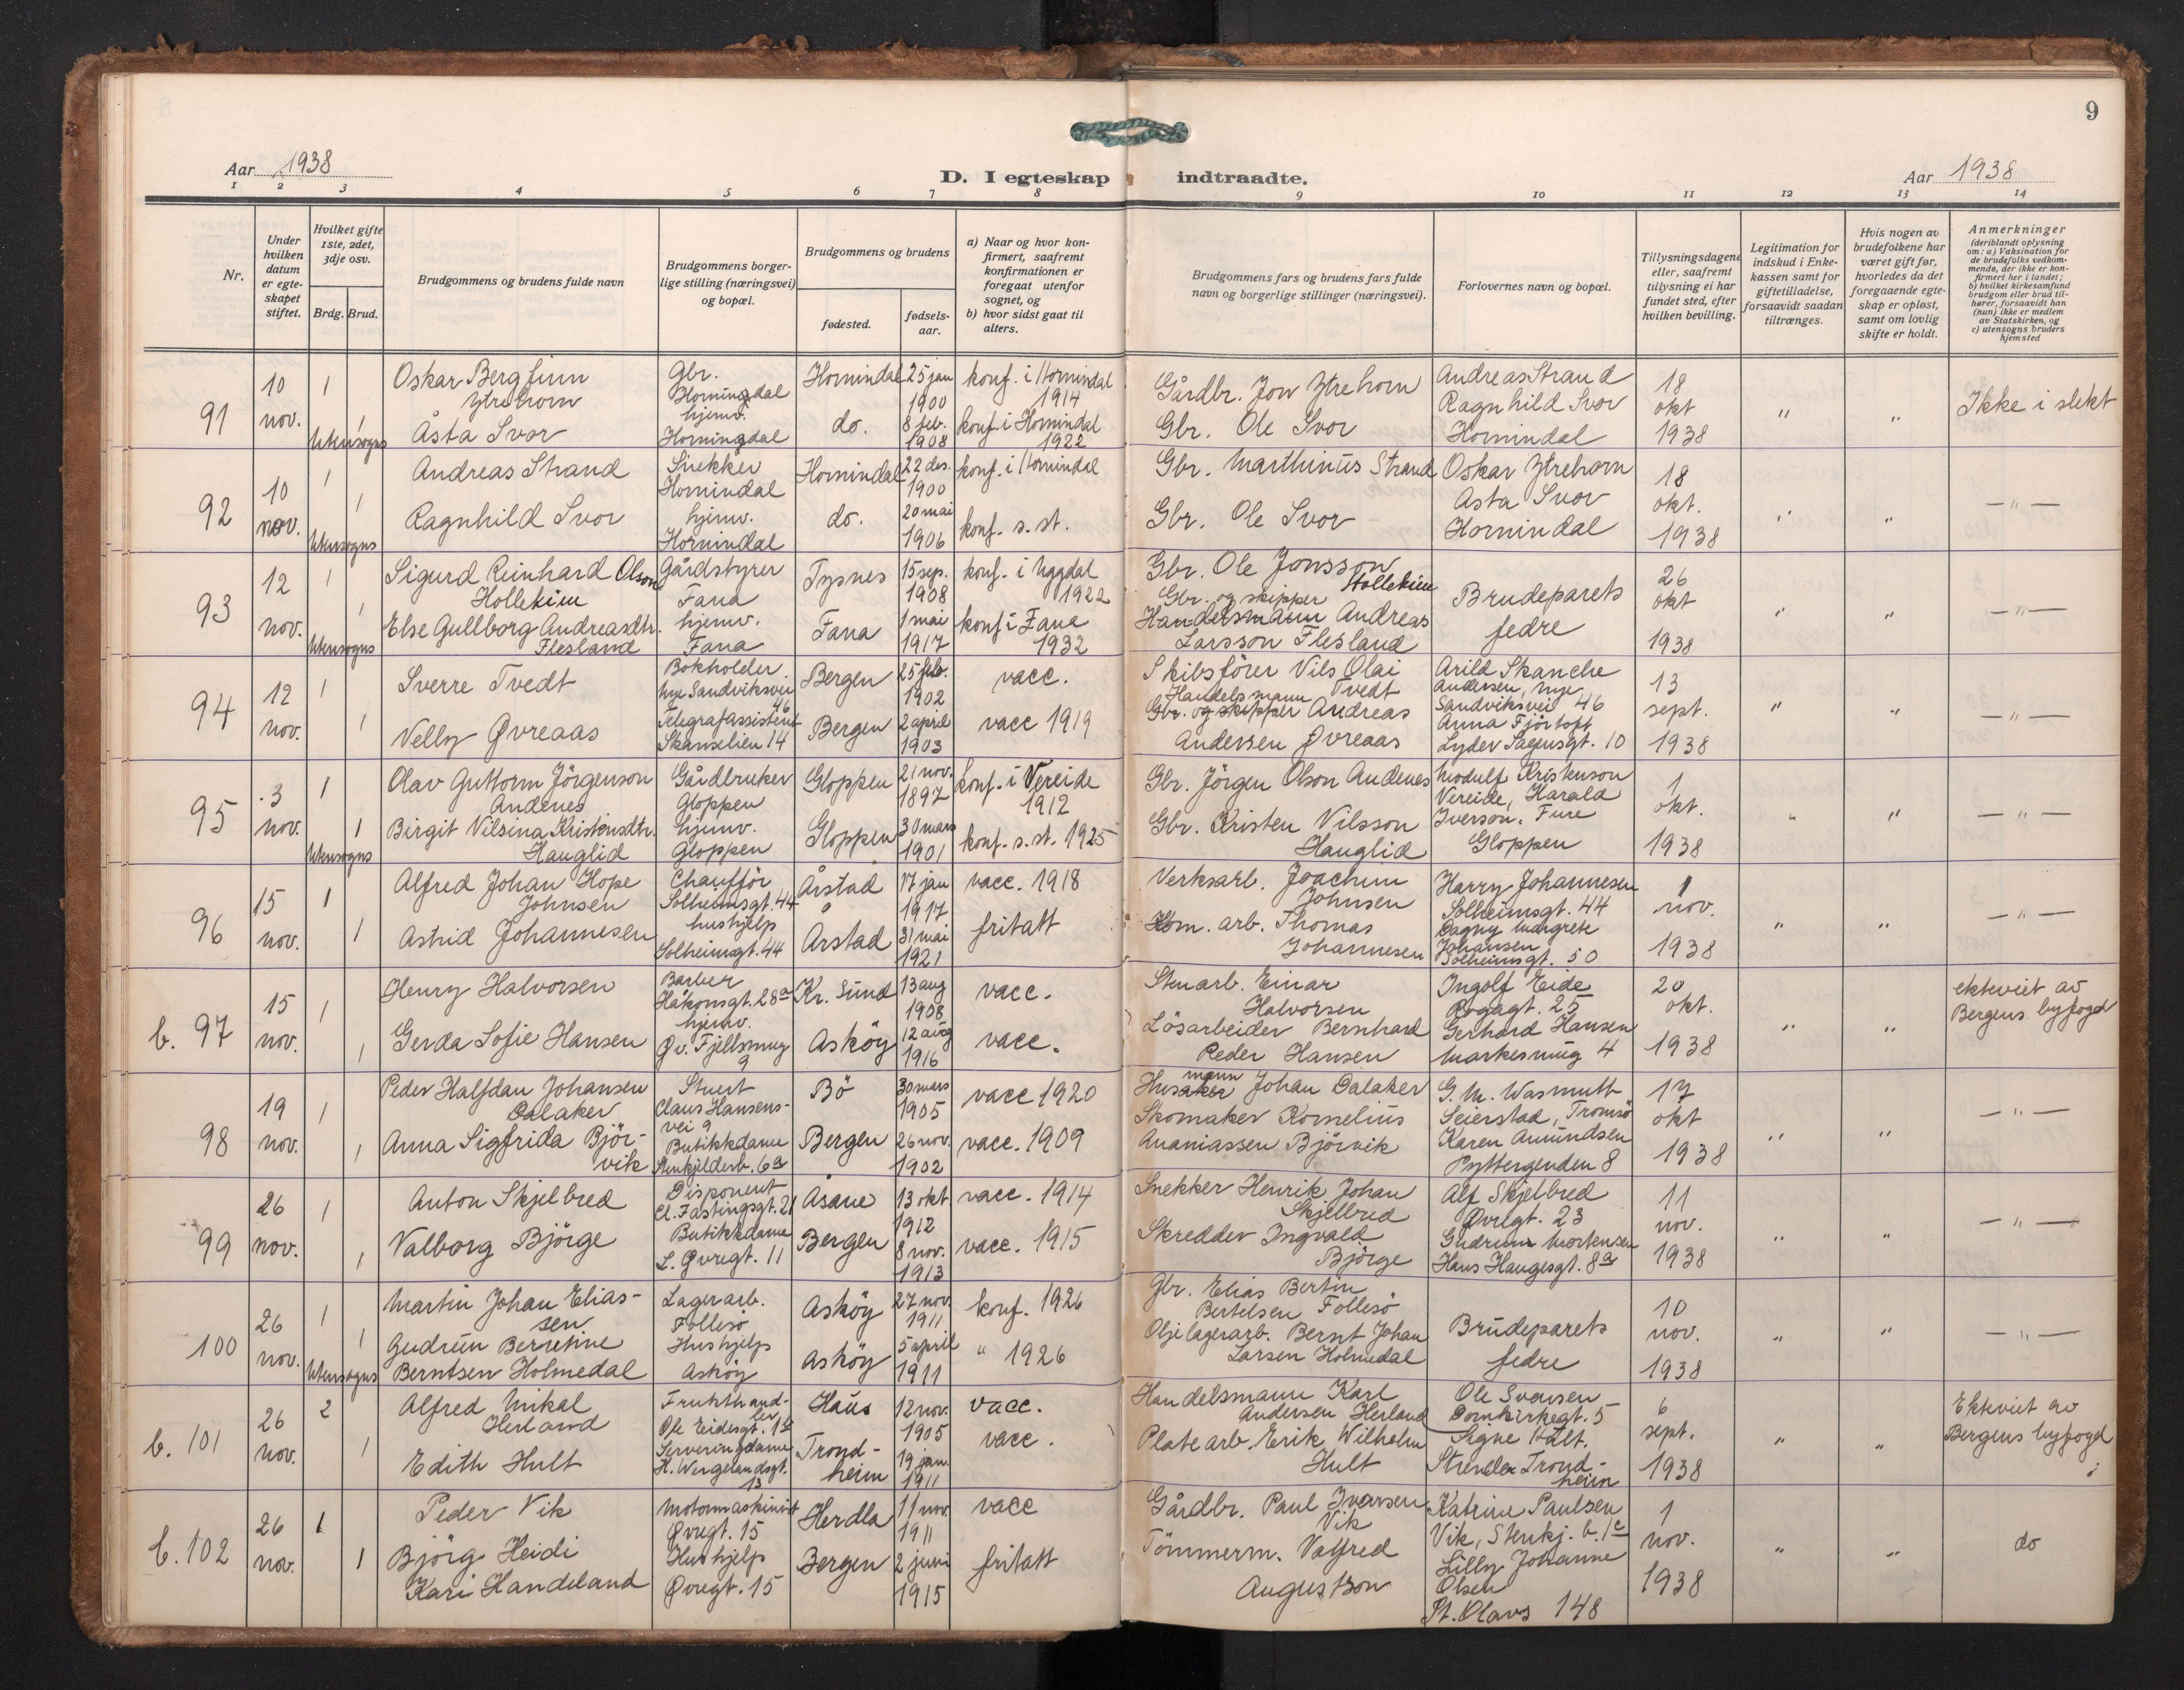 9
Aar 1938
D. I egteskap indtraadte.
Aar 1938
1 2 3 4 5 6 7 8 9 10 11 12 13 14
Nr.
Under hvilken datum er egteskapet stiftet.
Hvilket gifte 1ste, 2det, 3dje osv.
Brdg. Brud.
Brudgommens og brudens fulde navn
Brudgommens borgerlige stilling (næringsvei) og bopæl.
Brudgommens og brudens
fødested.
fødselsaar.
a) Naar og hvor konfirmert, saafremt konfirmationen er foregaat utenfor sognet, og
b) hvor sidst gaat til alters.
Brudgommens fars og brudens fars fulde navn og borgerlige stillinger (næringsvei).
Forlovernes navn og bopæl.
Tillysningsdagene eller, saafremt tullysning ei har fundet sted, efter hvilken bevilling.
Legitimation for indskud i Enkekassen samt for giftetilladelse, forsaavidt saadan tiltrænges.
Hvis nogen av brudefolkene har været gift før, hvorledes da det foregaaende egteskap er opløst, samt om lovlig skifte er holdt.
Anmerkninger
(deriblandt oplysning om: a) Vaksination for de brudefolks vedkommende, der ikke er konfirmert her i landet; b) hvilket kirkesamfund brudgom eller brud tilhører, forsaavidt han (hun) ikke er medlem av Statskirken, og c) utensogns bruders hjemsted
91
10 nov.
1
1
Utensogns
Oskar Bergfinn Ytrehorn
Åsta Svor
Gbr. Horningdal
hjemv. Horningdal
Hornindal
do.
25 jan 1900
8 feb. 1908
konf. i Hornindal 1914
konf. i Hornindal 1922
Gårdbr. Jon Ytrehorn
Gbr. Ole Svor
Andreas Strand
Ragnhild Svor
Hornindal
18 okt 1938
" "
Ikke i slekt
92
10 nov.
1
1
Utensogns
Andreas Strand
Ragnhild Svor
Snekker Hornindal
hjemv. Hornindal
Hornindal
do.
22 des. 1900
20 mai 1906
konf. i Hornindal
konf. s. st.
Gbr. Marthinus Strand
Gbr. Ole Svor
Oskar Ytrehorn
Asta Svor
Hornindal
18 okt. 1938
" "
— " —
93
12 nov.
1
1
Utensogns
Sigurd Reinhard Olson Hollekim
Else Gullborg Andreasdtr. Flesland
Gårdstyrer Fana
hjemv. Fana
Tysnes
Fana
15 sep. 1908
1 mai 1917
konf. i Uggdal 1922
konf i Fana 1932
Gbr. Ole Jonsson Hollekim
Gbr. og skipper
Handelsmann Andreas Larsson Flesland
Brudeparets fedre
26 okt 1938
" "
— " —
94
12 nov.
1
1
Sverre Tvedt
Nelly Øvreaas
Bokholder Nye Sandviksvei 46
Telegrafassistent Skanselien 14
Bergen
Bergen
25 feb. 1902
2 april 1903
vacc.
vacc 1919
Skibsförer Nils Olai Tvedt
Handelsmann
Gbr. og skipper Andreas Andersen Øvreaas
Arild Skanche Andersen, Nye Sandviksvei 46
Anna Fjörtoft Lyder Sagensgt. 10
13 sept. 1938
" "
— " —
95
3 nov.
1
1
Utensogns
Olav Guttorm Jörgenson Andenes
Birgit Nilsina Kristensdtr. Hauglid
Gårdbruker Gloppen
hjemv. Gloppen
Gloppen
Gloppen
21 nov. 1897
30 mars 1901
konf. i Vereide 1912
konf. s. st. 1925
Gbr. Jörgen Olson Andenes
Gbr. Kristen Nilsson Hauglid
Modulf Kristenson Vereide, Harald Iverson, Fure
Gloppen
1 okt. 1938
" "
— " —
96
15 nov.
1
1
Alfred Johan Hope Johnsen
Astrid Johannesen
Chaufför Solheimsgt. 44
hushjelp Solheimsgt. 44
Årstad
Årstad
17 jan 1917
31 mai 1921
vacc. 1918
fritatt
Verksarb. Joachim Johnsen
Kom. arb. Thomas Johannesen
Harry Johannesen Solheimsgt. 44
Dagny Margrete Johansen Solheimsgt. 50
1 nov. 1938
" "
— " —
b. 97
15 nov.
1
1
Henry Halvorsen
Gerda Sofie Hansen
Barber Håkonsgt. 28a
hjemv. Øv. Fjellsmug 9
Kr. Sund
Asköy
13 aug 1908
12 aug 1916
vacc.
vacc.
Stenarb. Einar Halvorsen
Lösarbeider Bernhard Peder Hansen
Ingolf Eide
Rogagt. 25
Gerhard Hansen
Markesmug 4
20 okt. 1938
" "
ekteviet av Bergens byfogd
98
19 nov.
1
1
Peder Halfdan Johansen Dalaker
Anna Sigfrida Björvik
Stuert Claus Hansensvei 9
Butikkdame Stenkjelderb. 6a
Bö
Bergen
30 mars 1905
26 nov. 1902
vacc 1920
vacc. 1909
Husmann Johan Dalaker
Skomaker Kornelius Ananiassen Björvik
G. M. Wasmutt Seierstad, Tromsö
Karen Amundsen
Pyttergenden 8
17 okt 1938
" "
— " —
99
26 nov.
1
1
Anton Skjelbred
Valborg Björge
Disponent Cl. Fastingsgt. 21
Butikkdame L. Øvregt. 11
Åsane
Bergen
13 okt 1912
8 nov. 1913
vacc. 1914
vacc. 1915
Snekker Henrik Johan Skjelbred
Skredder Ingvald Björge
Alf Skjelbred Øvregt. 23
Gudrun Mortensen Hans Haugesgt. 8a
11 nov. 1938
" "
— " —
100
26 nov.
1
1
Utensogns
Martin Johan Eliassen
Gudrun Berntine Berntsen Holmedal
Lagerarb. Follesö
Hushjelp Asköy
Asköy
Asköy
27 nov. 1911
5 april 1911
konf. 1926
" 1926
Gbr. Elias Bertin Bertelsen Follesö
Oljelagerarb. Bernt Johan Larsen Holmedal
Brudeparets fedre
10 nov. 1938
" "
— " —
b. 101
26 nov.
2
1
Alfred Mikal Herland
Edith Hult
Frukthandler Ole Eidesgt. 1
Serveringsdame H. Wergelandsgt. 13
Haus
Trondheim
12 nov. 1905
19 jan. 1911
vacc.
vacc.
Handelsmann Karl Andersen Herland
Platearb. Erik Wilhelm Hult
Ole Svensen Domkirkegt. 5
Signe Hult.
Trondheim
6 sept. 1938
" "
Ekteviet av Bergens byfogd
b. 102
26 nov.
1
1
Peder Vik
Bjørg Heidi Kari Handeland
Motormaskinist Øvregt. 15
Hushjelp Øvregt. 15
Herdla
Bergen
11 nov. 1911
2 juni 1915
vacc
fritatt
Gårdbr. Paul Iversen Vik
Tömmerm. Valfred Augustson
Katrine Paulsen Vik, Stenkj. b. 1c
Lilly Johanne Olsen
St. Olavs 148
1 nov. 1938
" "
do